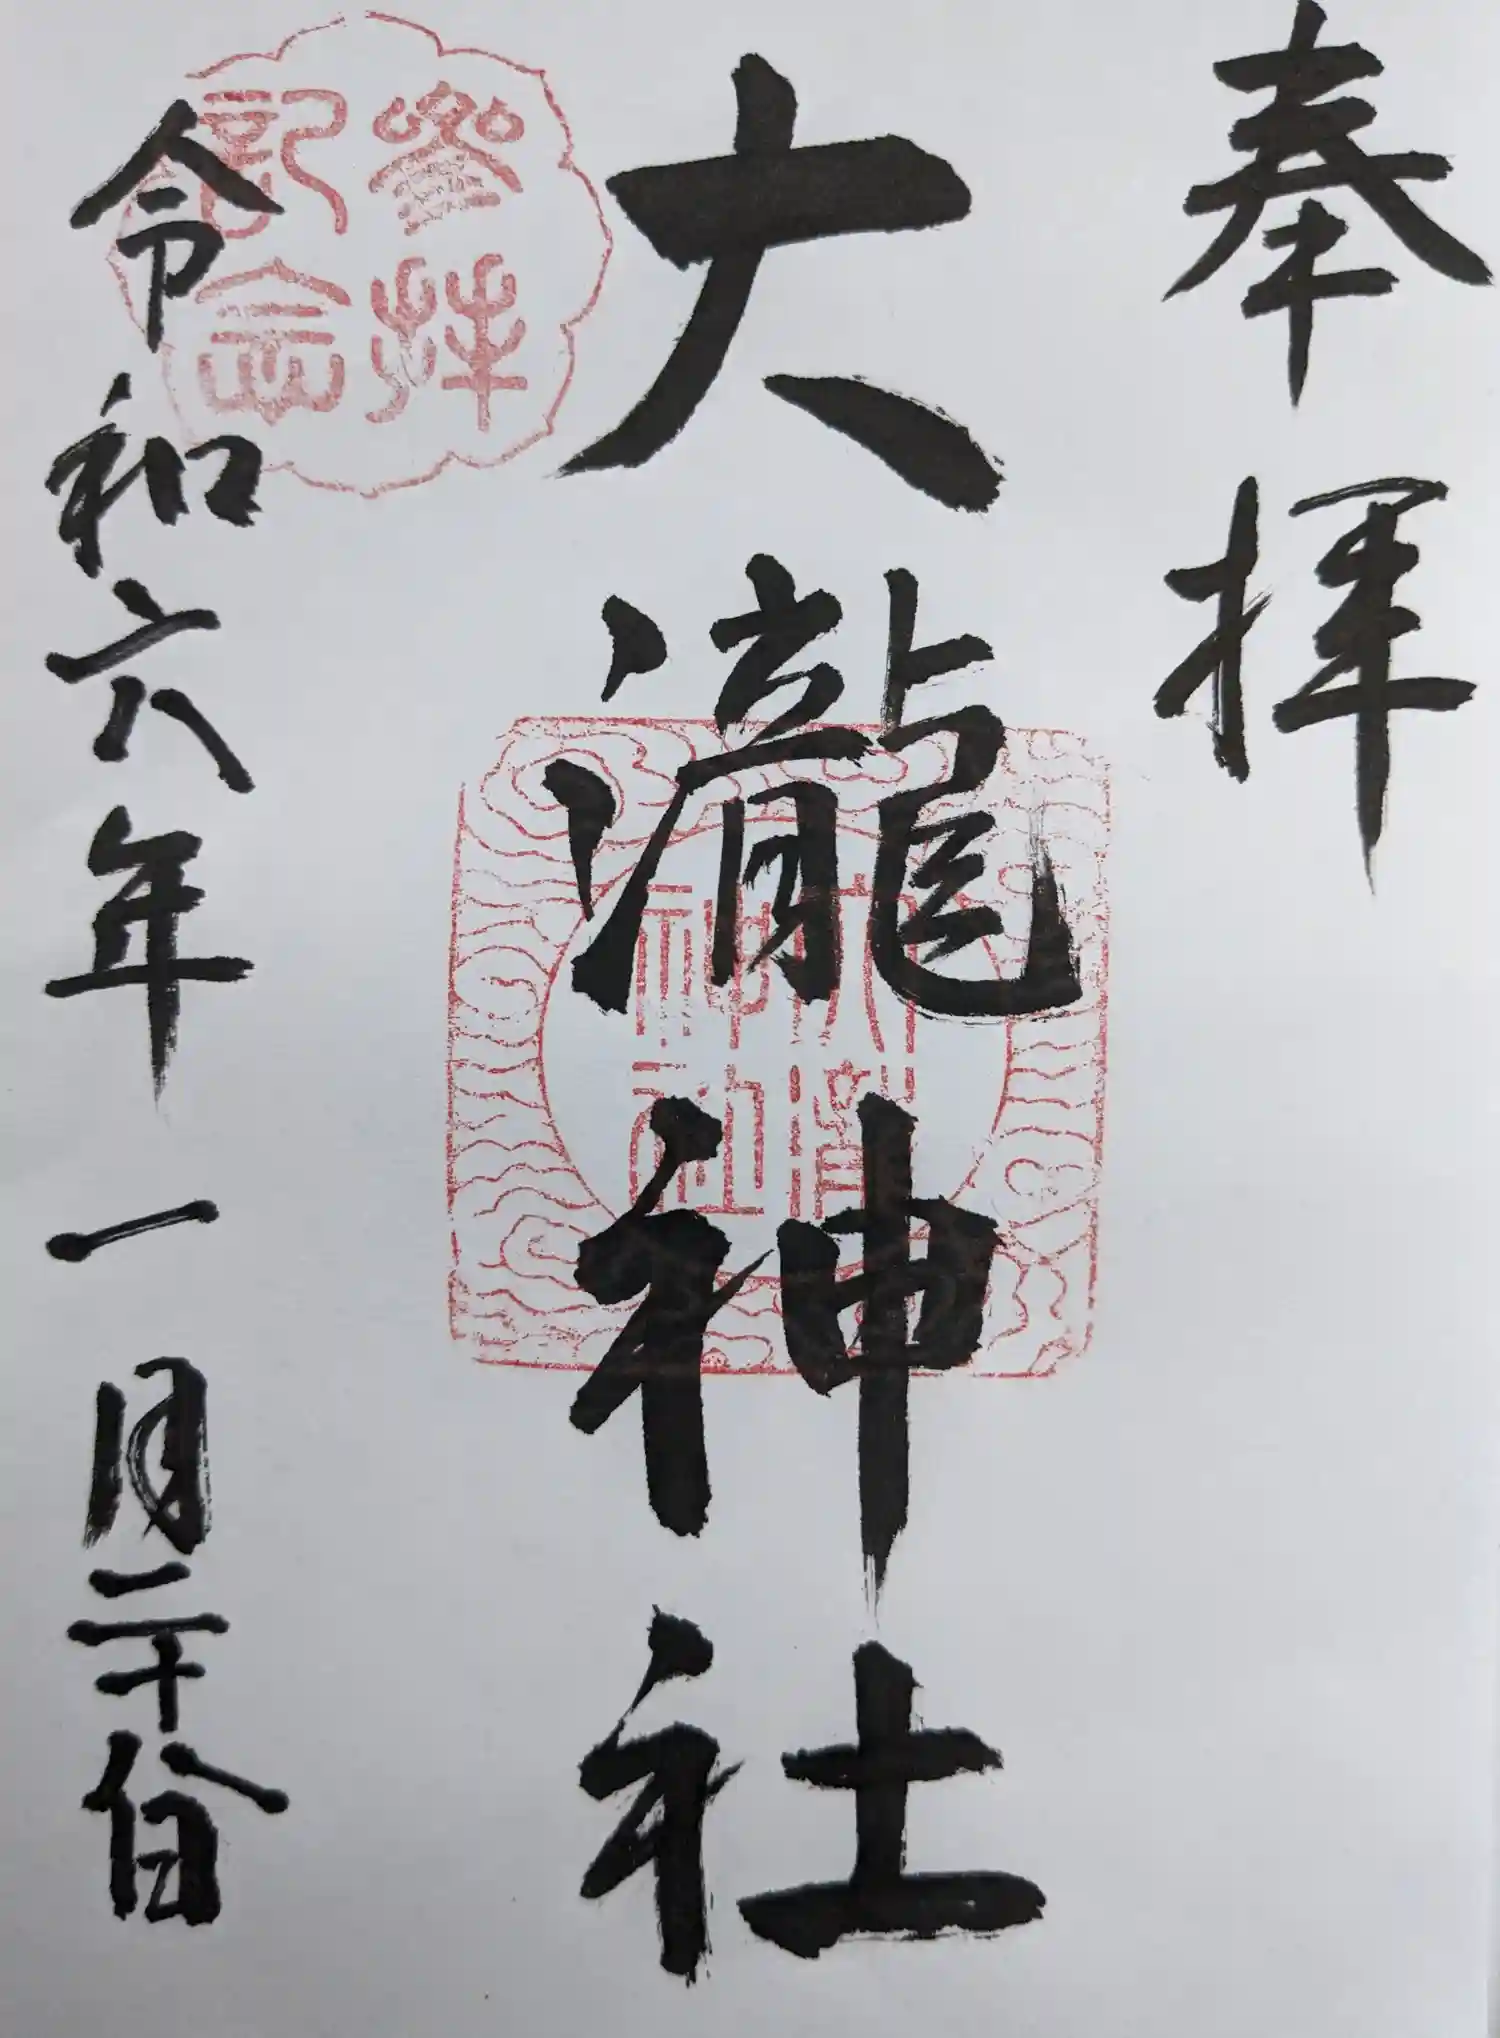 奉拝
大瀧神社
大瀧
神社
參拝
記念
令和六年一月二十八日